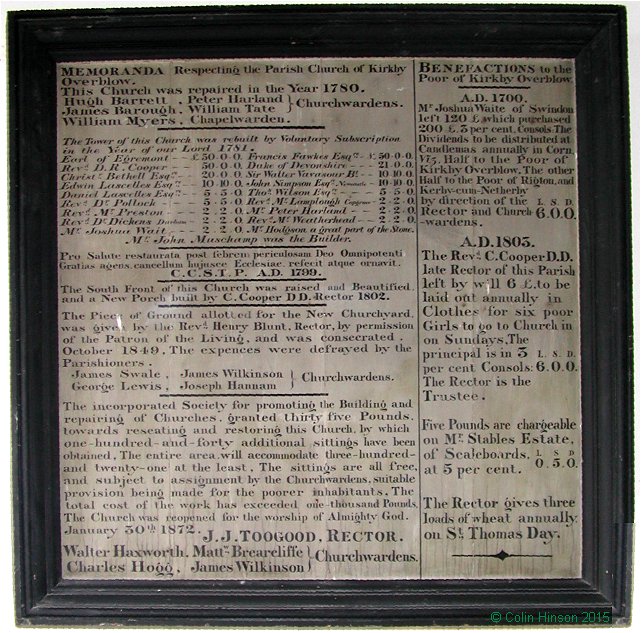 MEMORANDA Respecting the Parish Church of Kirkby
Overblow.
This Church was repaired in the Year 1780.
Hugh Barrett, Peter Harland
James Barough, William Tate } Churchwardens.
William Myers, Chapelwarden.
The Tower of this Church was rebuilt by Voluntary Subscription
in the Year of our Lord 1781.
Earl of Egremont - - £ 50.0.0. Francis Fawkes Esqr. £. 50.0.0.
Revd. D.R. Cooper - - 50.0.0. Duke of Devonshire - - 21.0.0.
Christr. Bethell Esqr. - - 20.0.0. Sir Walter Vavasour Bt. - 10.10.0.
Edwin Lascelles Esqr. - - 10.10.0. John Simpson Esqr. - 10.10.0.
Daniel Lascelles Esqr. - - 5.5.0. Thos. Wilson Esqr. - - 5.5.0.
Revd. Dr. Pollock - - - 5.5.0. Revd. Mr. Lamplough - 2.2.0.
Revd. Mr. Preston - - - 2.2.0. Mr. Peter Harland - - 2.2.0.
Revd. Dr. Dickens Durham - 2.2.0. Revd. Mr. Weatherhead - - 2.2.0.
Mr. Joshua Wait - - - 2.2.0. Mr. Hodgson a great part of the Stone.
Mr. John Muschamp was the Builder.
Pro Salute restaurata post febrem periculosam Deo Omnipotenti
Gratias agens, cancellum hujusce Ecclesiae, refecit atque ornavit.
C.C.S.T.P. A.D. 1799.
The South Front of this Church was raised and Beautified,
and a New Porch built by C. Cooper D D. Rector 1802.
The Piece of Ground allotted for the New Churchyard
was given by the Revd. Henry Blunt, Rector, by permission
of the Patron of the Living, and was consecrated
October 1849. The expences were defrayed by the
Parishioners.
James Swale, James Wilkinson
George Lewis, Joseph Hannam } Churchwardens.
The incorporated Society for promoting the Building and
repairing of Churches, granted thirty five Pounds,
towards reseating and restoring this Church, by which
one-hundred-and-forty additional sittings have been
obtained. The entire area will accommodate three-hundred-
and twenty-one at the least. The sittings are all free,
and subject to assignment by the Churchwardens, suitable
provision being made for the poorer inhabitants. The
total cost of the work has exceeded one-thousand Pounds.
The Church was reopened for the worship of Almighty God.
January 30th. 1872. J.J. TOOGOOD, RECTOR.
Walter Haxworth, Mattw. Brearcliffe
Charles Hogg, James Wilkinson } Churchwardens.
BENEFACTIONS to the
Poor of Kirkby Overblow.
A.D. 1700.
Mr. Joshua Waite of Swindon
left 120 £, which purchased
200 £. 3 per cent. Consols. The
Dividends to be distributed at
Candlemas annually in Corn,
Viz. Half to the Poor of
Kirkby Overblow. The other
Half to the Poor of Rigton, and
Kerby-cum-Netherby
by direction of the L. S. D.
Rector and Church 6.0.0.
-wardens.
A.D. 1803.
The Revd. C. Cooper D.D.
late Rector of this Parish
left by will 6 £, to be
laid out annually in
Clothes for six poor
Girls to go to Church in
on Sundays. The
principal is in 3 L. S. D.
per cent Consols: 6.0.0.
The Rector is the
Trustee.
Five Pounds are chargeable
on Mr. Stables Estate,
of Scaleboards, L. S. D
at 5 per cent. 0.5.0.
The Rector gives three
loads of wheat annually
on St. Thomas Day.
© Colin Hinson 2015